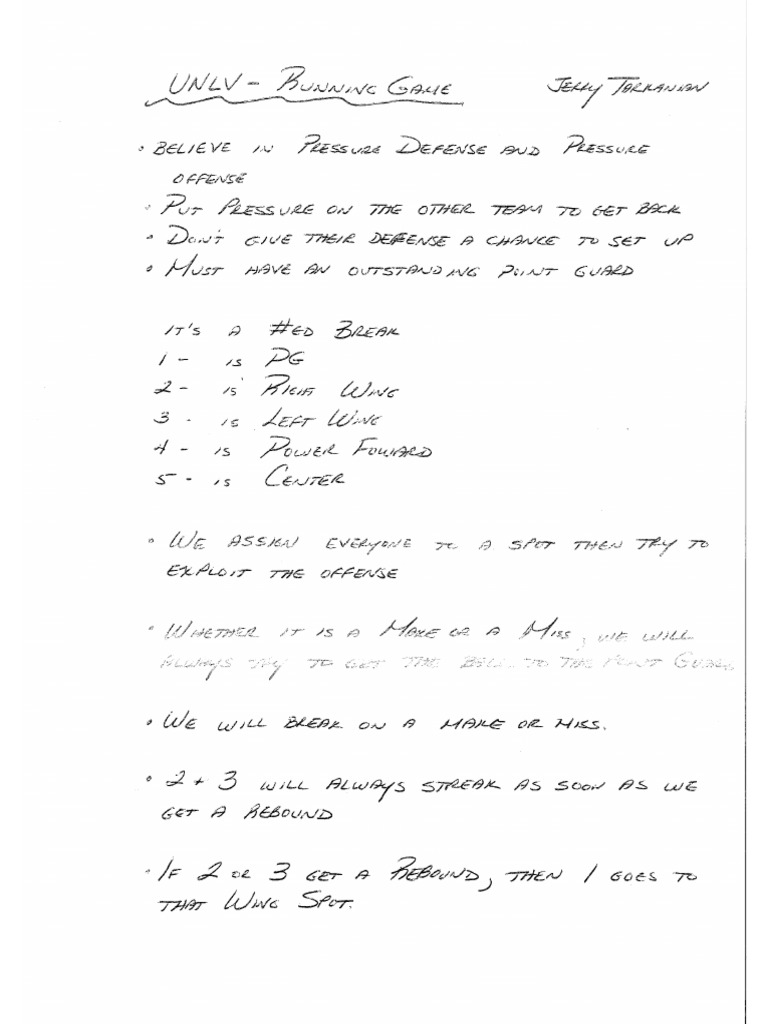 UNLV - RUNNING GAME JERRY TARKANIAN
• BELIEVE IN PRESSURE DEFENSE AND PRESSURE
OFFENSE
• PUT PRESSURE ON THE OTHER TEAM TO GET BACK
• DON'T GIVE THEIR DEFENSE A CHANCE TO SET UP
• MUST HAVE AN OUTSTANDING POINT GUARD
IT'S A #ED BREAK
1 - IS PG
2 - IS RIGHT WING
3 - IS LEFT WING
4 - IS POWER FOWARD
5 - IS CENTER
• WE ASSIGN EVERYONE TO A SPOT THEN TRY TO
EXPLOIT THE OFFENSE
• WHETHER IT IS A MAKE OR A MISS, WE WILL
ALWAYS TRY TO GET THE BALL TO THE POINT GUARD
• WE WILL BREAK ON A MAKE OR MISS.
• 2 + 3 WILL ALWAYS STREAK AS SOON AS WE
GET A REBOUND
• IF 2 OR 3 GET A REBOUND, THEN 1 GOES TO
THAT WING SPOT.